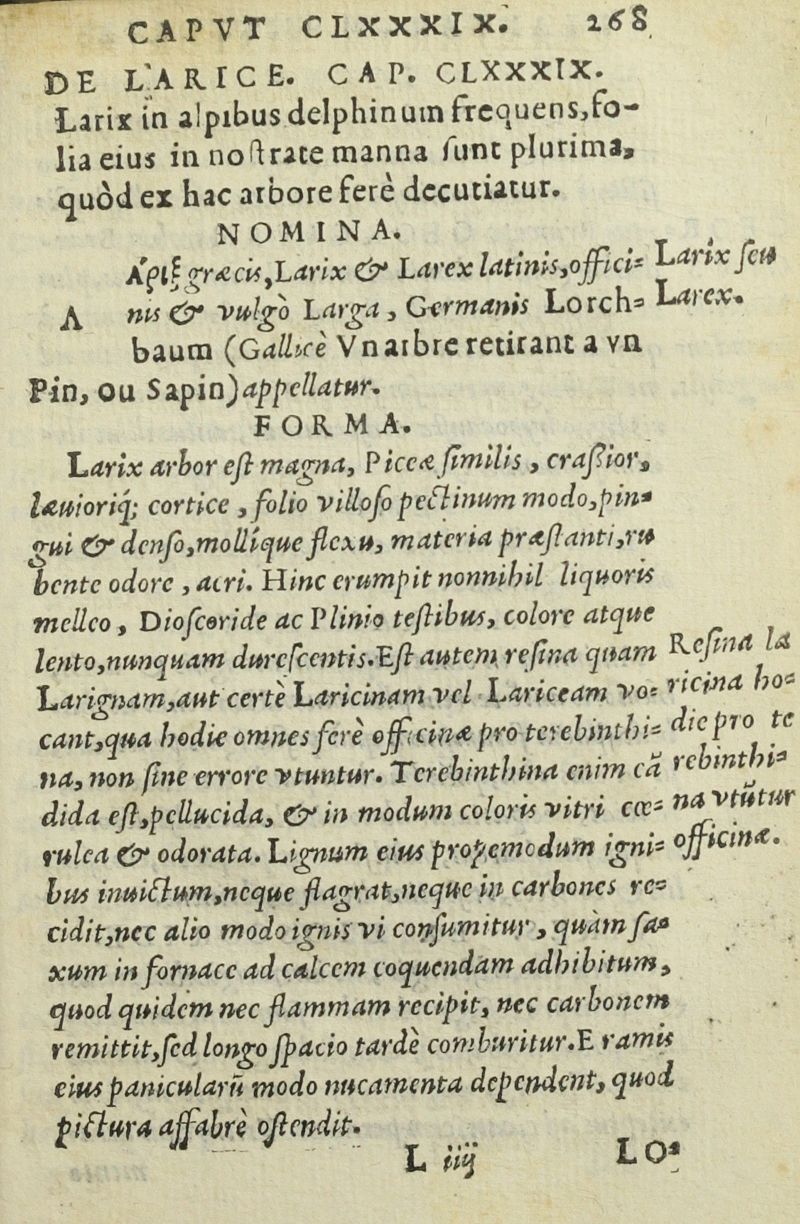 CAPVT CLXXXIX. 268
DE LARICE. CAP. CLXXXIX.
Larix in alpibus delphinum frequens, fo-
lia eius in noſtrate manna ſunt plurima,
quòd ex hac arbore ferè decutiatur.
NOMINA.
Λάριξ græcis, Larix & Larex latinis, offici-
nis & vulgò Larga, Germanis Lorch-
baum (Gallicè Vn arbre retirant a vn
Pin, ou Sapin) appellatur.
A
Larix ſeu
Larex.
FORMA.
Larix arbor eſt magna, Piceæ ſimilis, craſſior,
læuioriq́; cortice, folio villoſo pectinum modo, pin-
gui & denſo, mollíque flexu, materia præſtanti, ru
bente odore, acri. Hinc erumpit nonnihil liquoris
melleo, Dioſcoride ac Plinio teſtibus, colore atque
lento, nunquam dureſcentis. Eſt autem reſina quam
Larignam, aut certè Laricinam vel Lariceam vo-
cant, qua hodie omnes ferè officinæ pro terebinthi-
na, non ſine errore vtuntur. Terebinthina enim cā
dida eſt, pellucida, & in modum coloris vitri cœ-
rulea & odorata. Lignum eius propemodum igni-
bus inuictum, neque flagrat, neque in carbones re-
cidit, nec alio modo ignis vi conſumitur, quàm ſa-
xum in fornace ad calcem coquendam adhibitum,
quod quidem nec flammam recipit, nec carbonem
remittit, ſed longo ſpacio tardè comburitur. E ramis
eius panicularū modo nucamenta dependent, quod
pictura affabrè oſtendit.
Reſina la
ricina ho-
die pro te
rebinthi-
na vtūtur
officinæ.
L iiij LO-